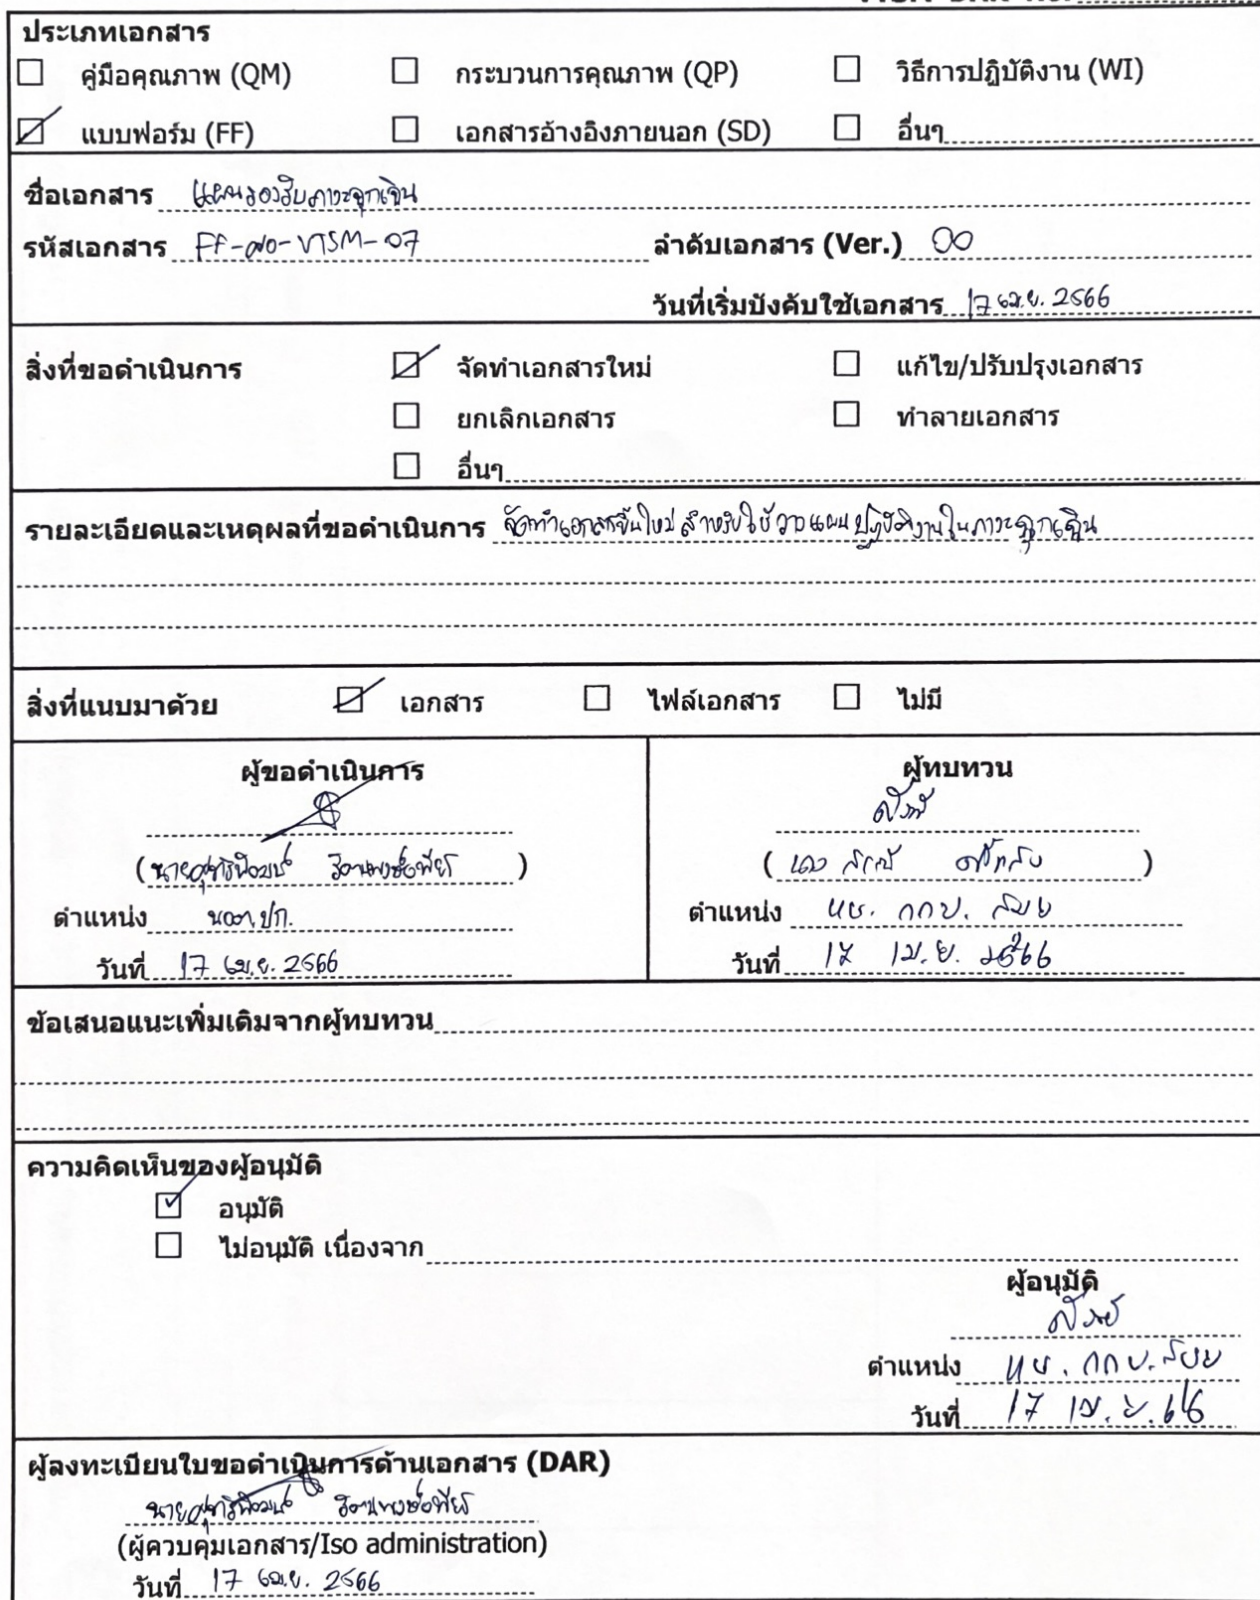 ประเภทเอกสาร
คู่มือคุณภาพ (QM) กระบวนการคุณภาพ (QP) วิธีการปฏิบัติงาน (WI)
แบบฟอร์ม (FF) เอกสารอ้างอิงภายนอก (SD) อื่นๆ
ชื่อเอกสาร แผนรองรับภาวะฉุกเฉิน
รหัสเอกสาร ลำดับเอกสาร (Ver.) 00
วันที่เริ่มบังคับใช้เอกสาร 17 เม.ย. 2566
สิ่งที่ขอดำเนินการ จัดทำเอกสารใหม่ แก้ไข/ปรับปรุงเอกสาร
ยกเลิกเอกสาร ทำลายเอกสาร
อื่นๆ
รายละเอียดและเหตุผลที่ขอดำเนินการ จัดทำเอกสารขึ้นใหม่ สำหรับใช้วางแผนปฏิบัติงานในภาวะฉุกเฉิน
สิ่งที่แนบมาด้วย เอกสาร ไฟล์เอกสาร ไม่มี
ผู้ขอดำเนินการ ผู้ทบทวน
ตำแหน่ง ตำแหน่ง
วันที่ 17 เม.ย. 2566 วันที่ 17 เม.ย. 2566
ข้อเสนอแนะเพิ่มเติมจากผู้ทบทวน
ความคิดเห็นของผู้อนุมัติ
อนุมัติ
ไม่อนุมัติ เนื่องจาก
ผู้อนุมัติ
ตำแหน่ง
วันที่ 17 เม.ย. 66
ผู้ลงทะเบียนใบขอดำเนินการด้านเอกสาร (DAR)
(ผู้ควบคุมเอกสาร/Iso administration)
วันที่ 17 เม.ย. 2566